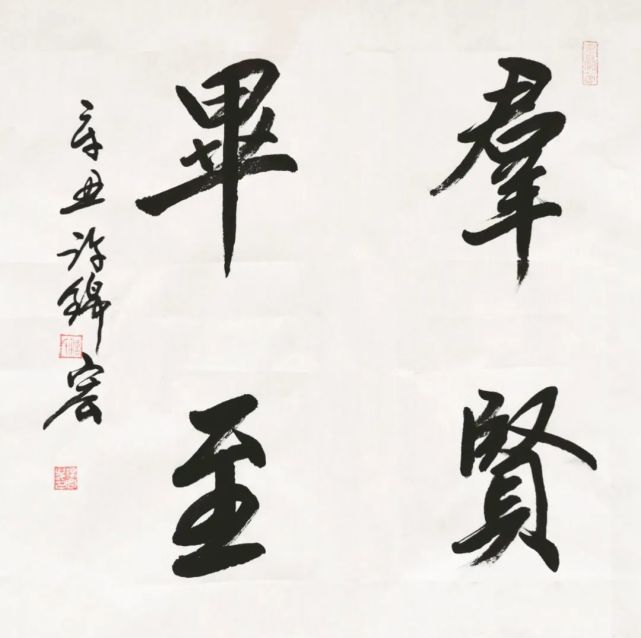 羣賢
畢至
辛丑許錦宏